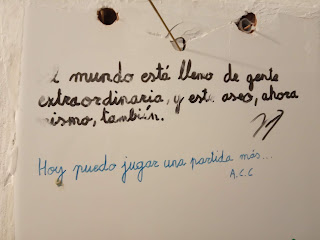 El mundo está lleno de gente
extraordinaria, y este aseo, ahora
mismo, también.
Hoy puedo jugar una partida más...
A.C.C